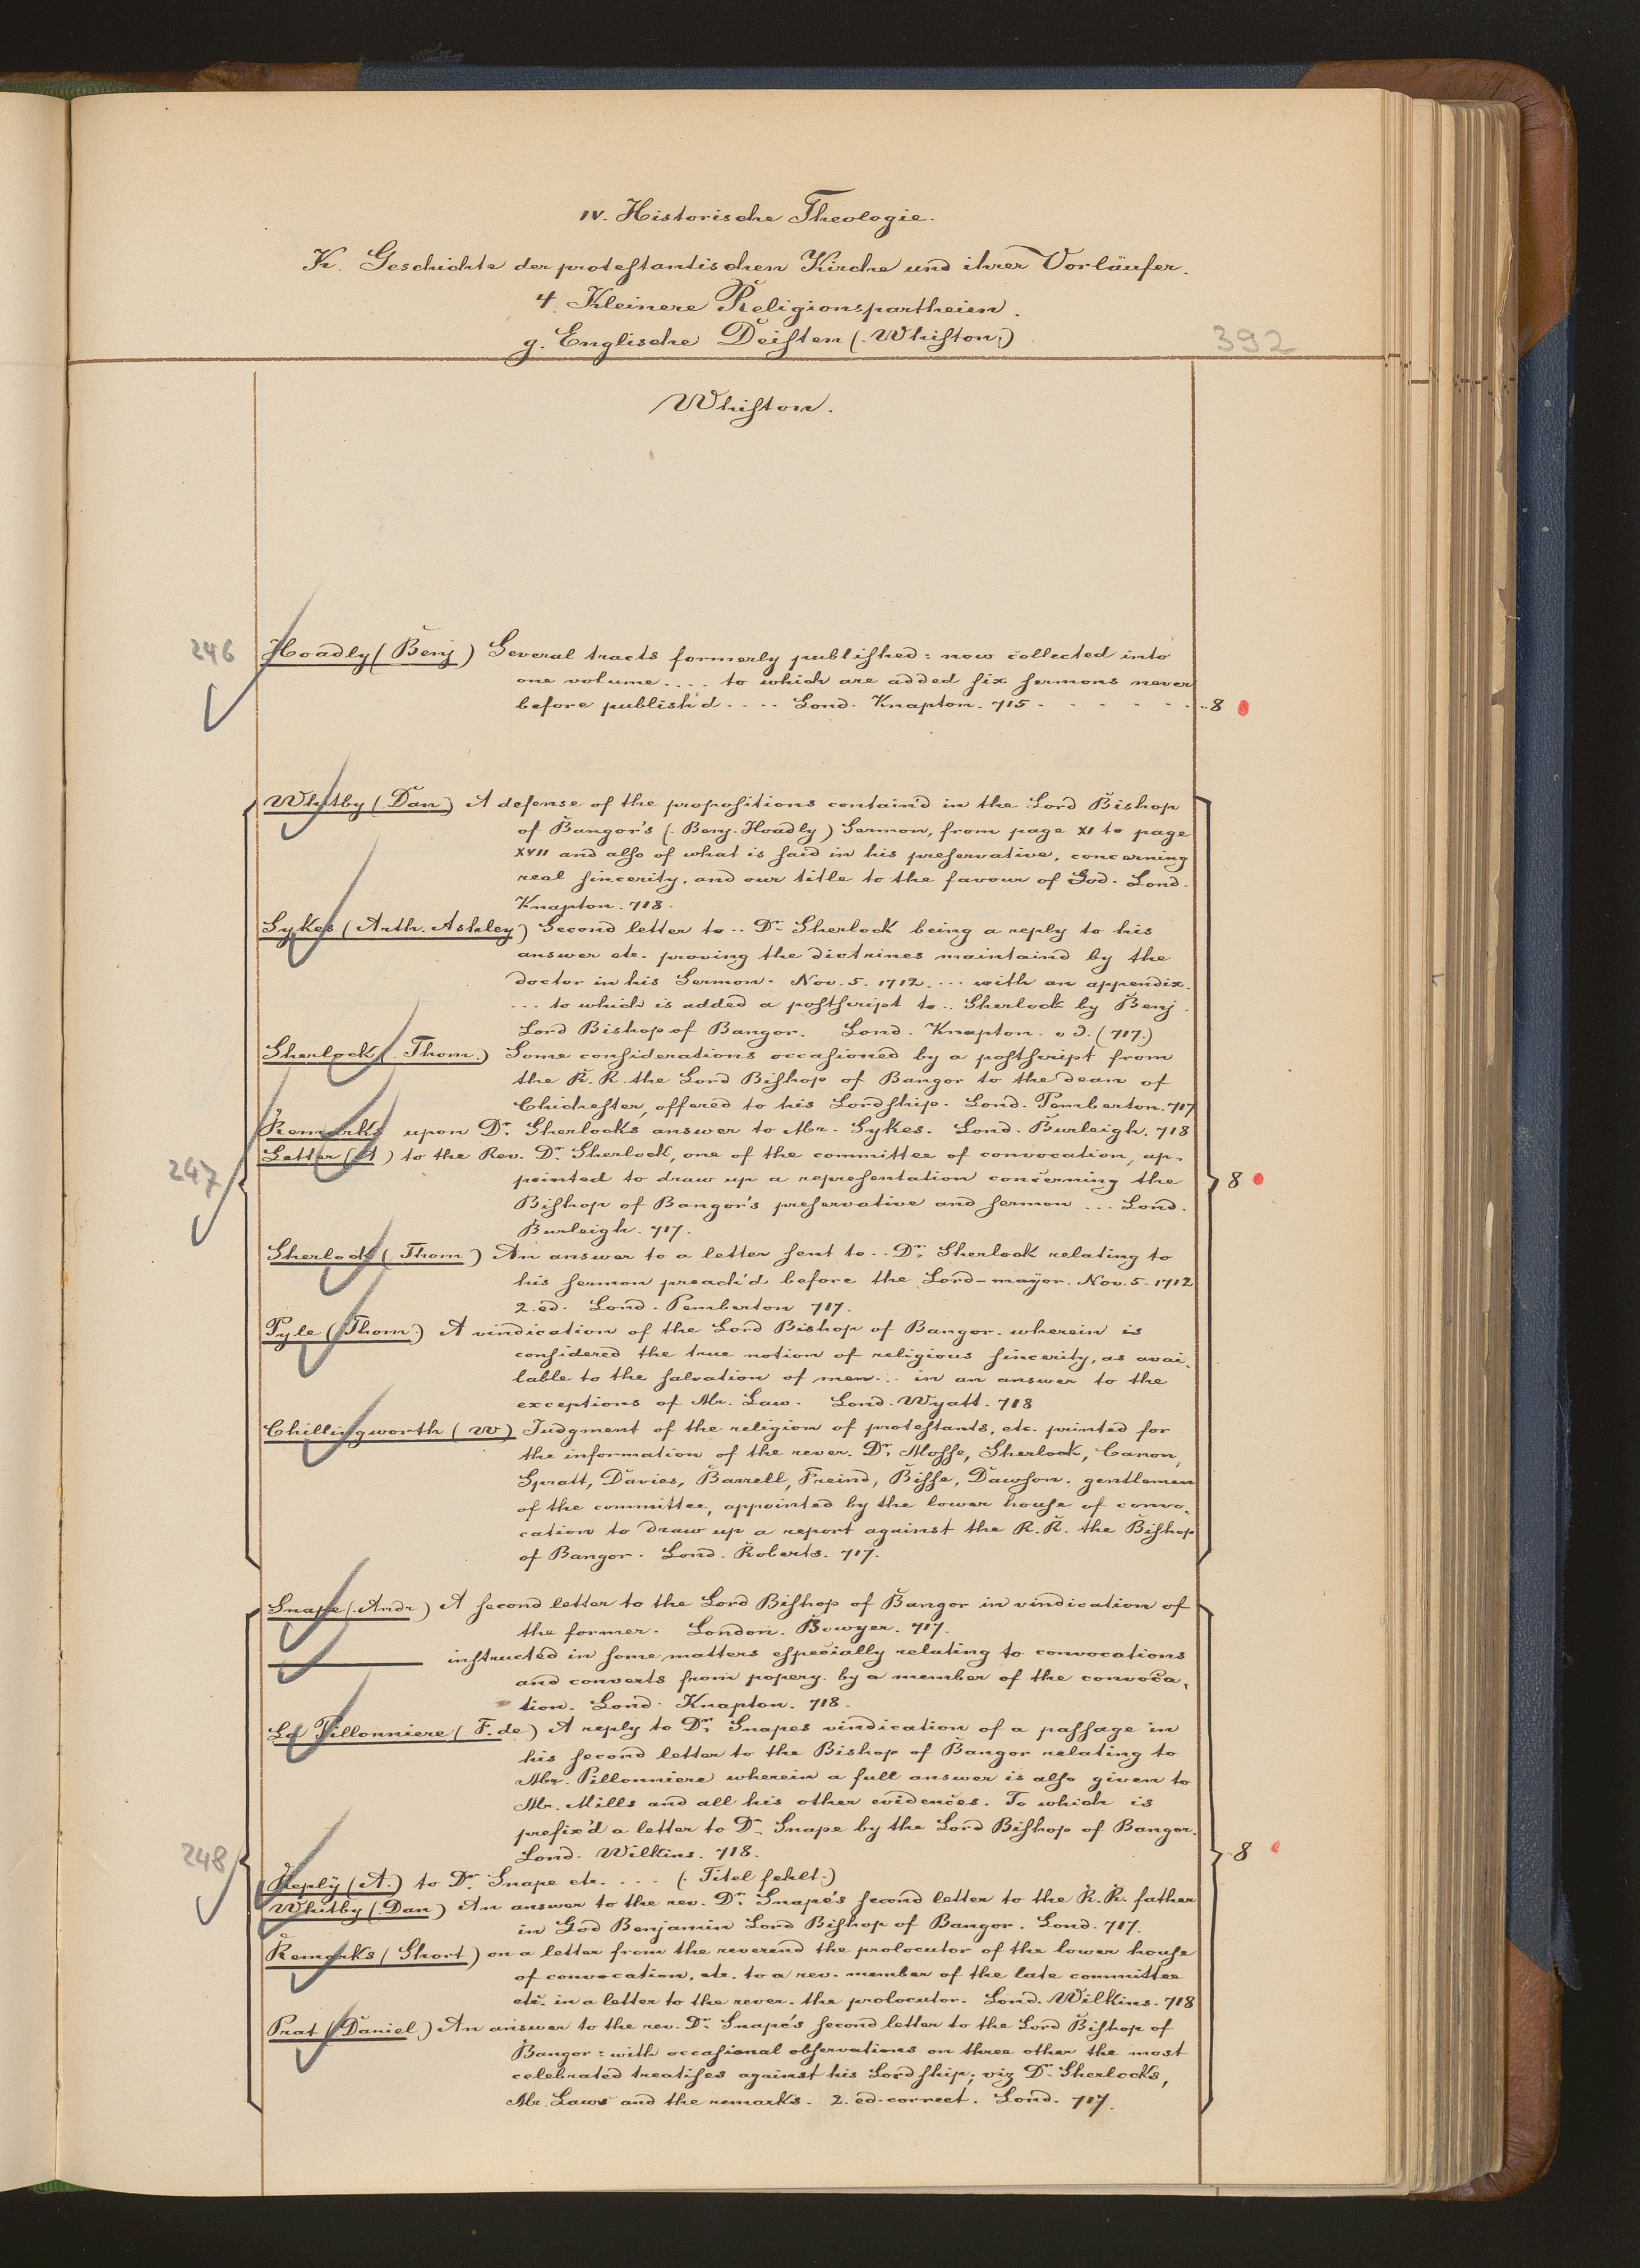 IV. Historische Theologie.
K. Geschichte der protestantischen Kirche und ihrer Vorläufer.
4. Kleinere Religionspartheien.
g. Englische Deisten (Whiston)
392
Whiston.
246 Hoadly (Benj) Several tracts formerly published: now collected into
one volume .... to which are added six sermons never
before publish'd .... Lond. Knapton. 715 - - - - - - .. 8
Whitby (Dan) A defense of the propositions contain'd in the Lord Bishop
of Bangor's (Benj. Hoadly) Sermon, from page XI to page
XVII and also of what is said in his preservative, concerning
real sincerity, and our title to the favour of God. Lond.
Knapton. 718.
Sykes (Arth. Ashley) Second letter to .. Dr. Sherlock being a reply to his
answer etc. proving the dictrines maintaind by the
doctor in his Sermon. Nov. 5. 1712. ... with an appendix.
... to which is added a postscript to .. Sherlock by Benj.
Lord Bishop of Bangor. Lond. Knapton. o J. (717.)
Sherlock (Thom.) Some considerations occasioned by a postscript from
the R. R. the Lord Bishop of Bangor to the dean of
Chichester, offered to his Lordship. Lond. Pemberton. 717
Remarks upon Dr. Sherlocks answer to Mr. Sykes. Lond. Burleigh. 718
Letter (A) to the Rev. Dr. Sherlock, one of the committee of convocation, ap-
247 pointed to draw up a representation concerning the 8
Bishop of Bangor's preservative and sermon ... Lond.
Burleigh. 717.
Sherlock (Thom) An answer to a letter sent to .. Dr. Sherlock relating to
his sermon preach'd before the Lord-mayor. Nov. 5. 1712
2. ed. Lond. Pemberton 717.
Pyle (Thom.) A vindication of the Lord Bishop of Bangor. wherein is
considered the true notion of religious sincerity, as avai-
lable to the salvation of men ... in an answer to the
exceptions of Mr. Law. Lond. Wyatt. 718
Chillingworth (W) Judgment of the religion of protestants, etc. printed for
the information of the rever. Dr. Mosse, Sherlock, Canon,
Spratt, Davies, Barrell, Freind, Bisse, Dawson. gentlemen
of the committee, appointed by the lower house of convo-
cation to draw up a report against the R. R. the Bishop
of Bangor. Lond. Roberts. 717.
Snape (Andr) A second letter to the Lord Bishop of Bangor in vindication of
the former. London. Bowyer. 717.
——— instructed in some matters especially relating to convocations
and converts from popery. by a member of the convoca-
tion. Lond. Knapton. 718.
La Pillonniere (F. de) A reply to Dr. Snapes vindication of a passage in
his second letter to the Bishop of Bangor relating to
Mr. Pillonniere wherein a full answer is also given to
Mr. Mills and all his other evidences. To which is
prefix'd a letter to Dr. Snape by the Lord Bishop of Bangor.
248 Lond. Wilkins. 718. 8
Reply (A.) to Dr. Snape etc. ... (Titel fehlt.)
Whitby (Dan) An answer to the rev. Dr. Snape's second letter to the R. R. father
in God Benjamin Lord Bishop of Bangor. Lond. 717.
Remarks (Short) on a letter from the reverend the prolocutor of the lower house
of convocation, etc. to a rev. member of the late committee
etc. in a letter to the rever. the prolocutor. Lond. Wilkins. 718
Prat (Daniel) An answer to the rev. Dr. Snape's second letter to the Lord Bishop of
Bangor: with occasional observations on three other the most
celebrated treatises against his Lordship; viz Dr. Sherlocks,
Mr. Laws and the remarks. 2. ed. correct. Lond. 717.